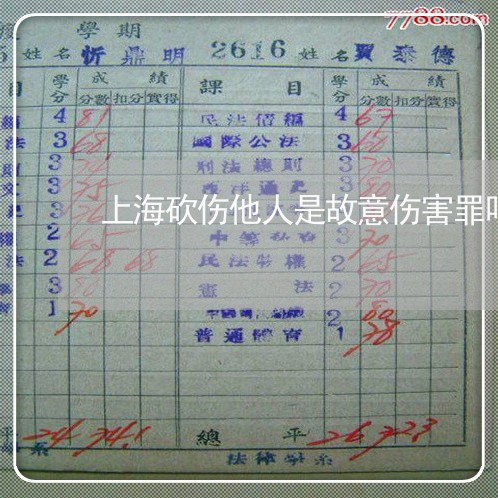 7788.com
學期
姓名 忻鼎明 2616 姓名 賈泰德
目 學分 成績 課目 學分 成績
分數 扣分 實得 分數 扣分 實得
4 81 民法債編 4 67
法 3 68 國際公法 3 60
3 刑法總則 3 70
文 3 75 西洋通史 3 80
3 3
上海砍伤他人是故意伤害罪吗
2 65 3 70
法 2 68 68 民法物權 2 65
3 80 憲法 2 70
1 70 2 80
普通體育 1 78
平 24 74.1 總平 26 72.3
系 法律學系